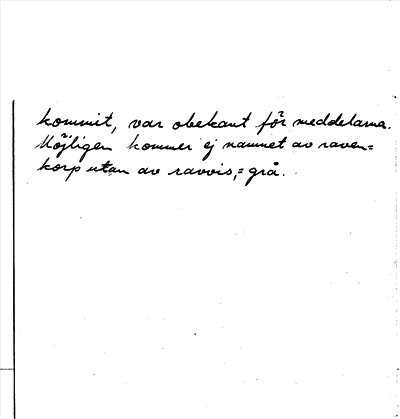 kommit, var obekant för meddelarna.
Möjligen kommer ej namnet av raven=
korp utan av ravvis,=grå.